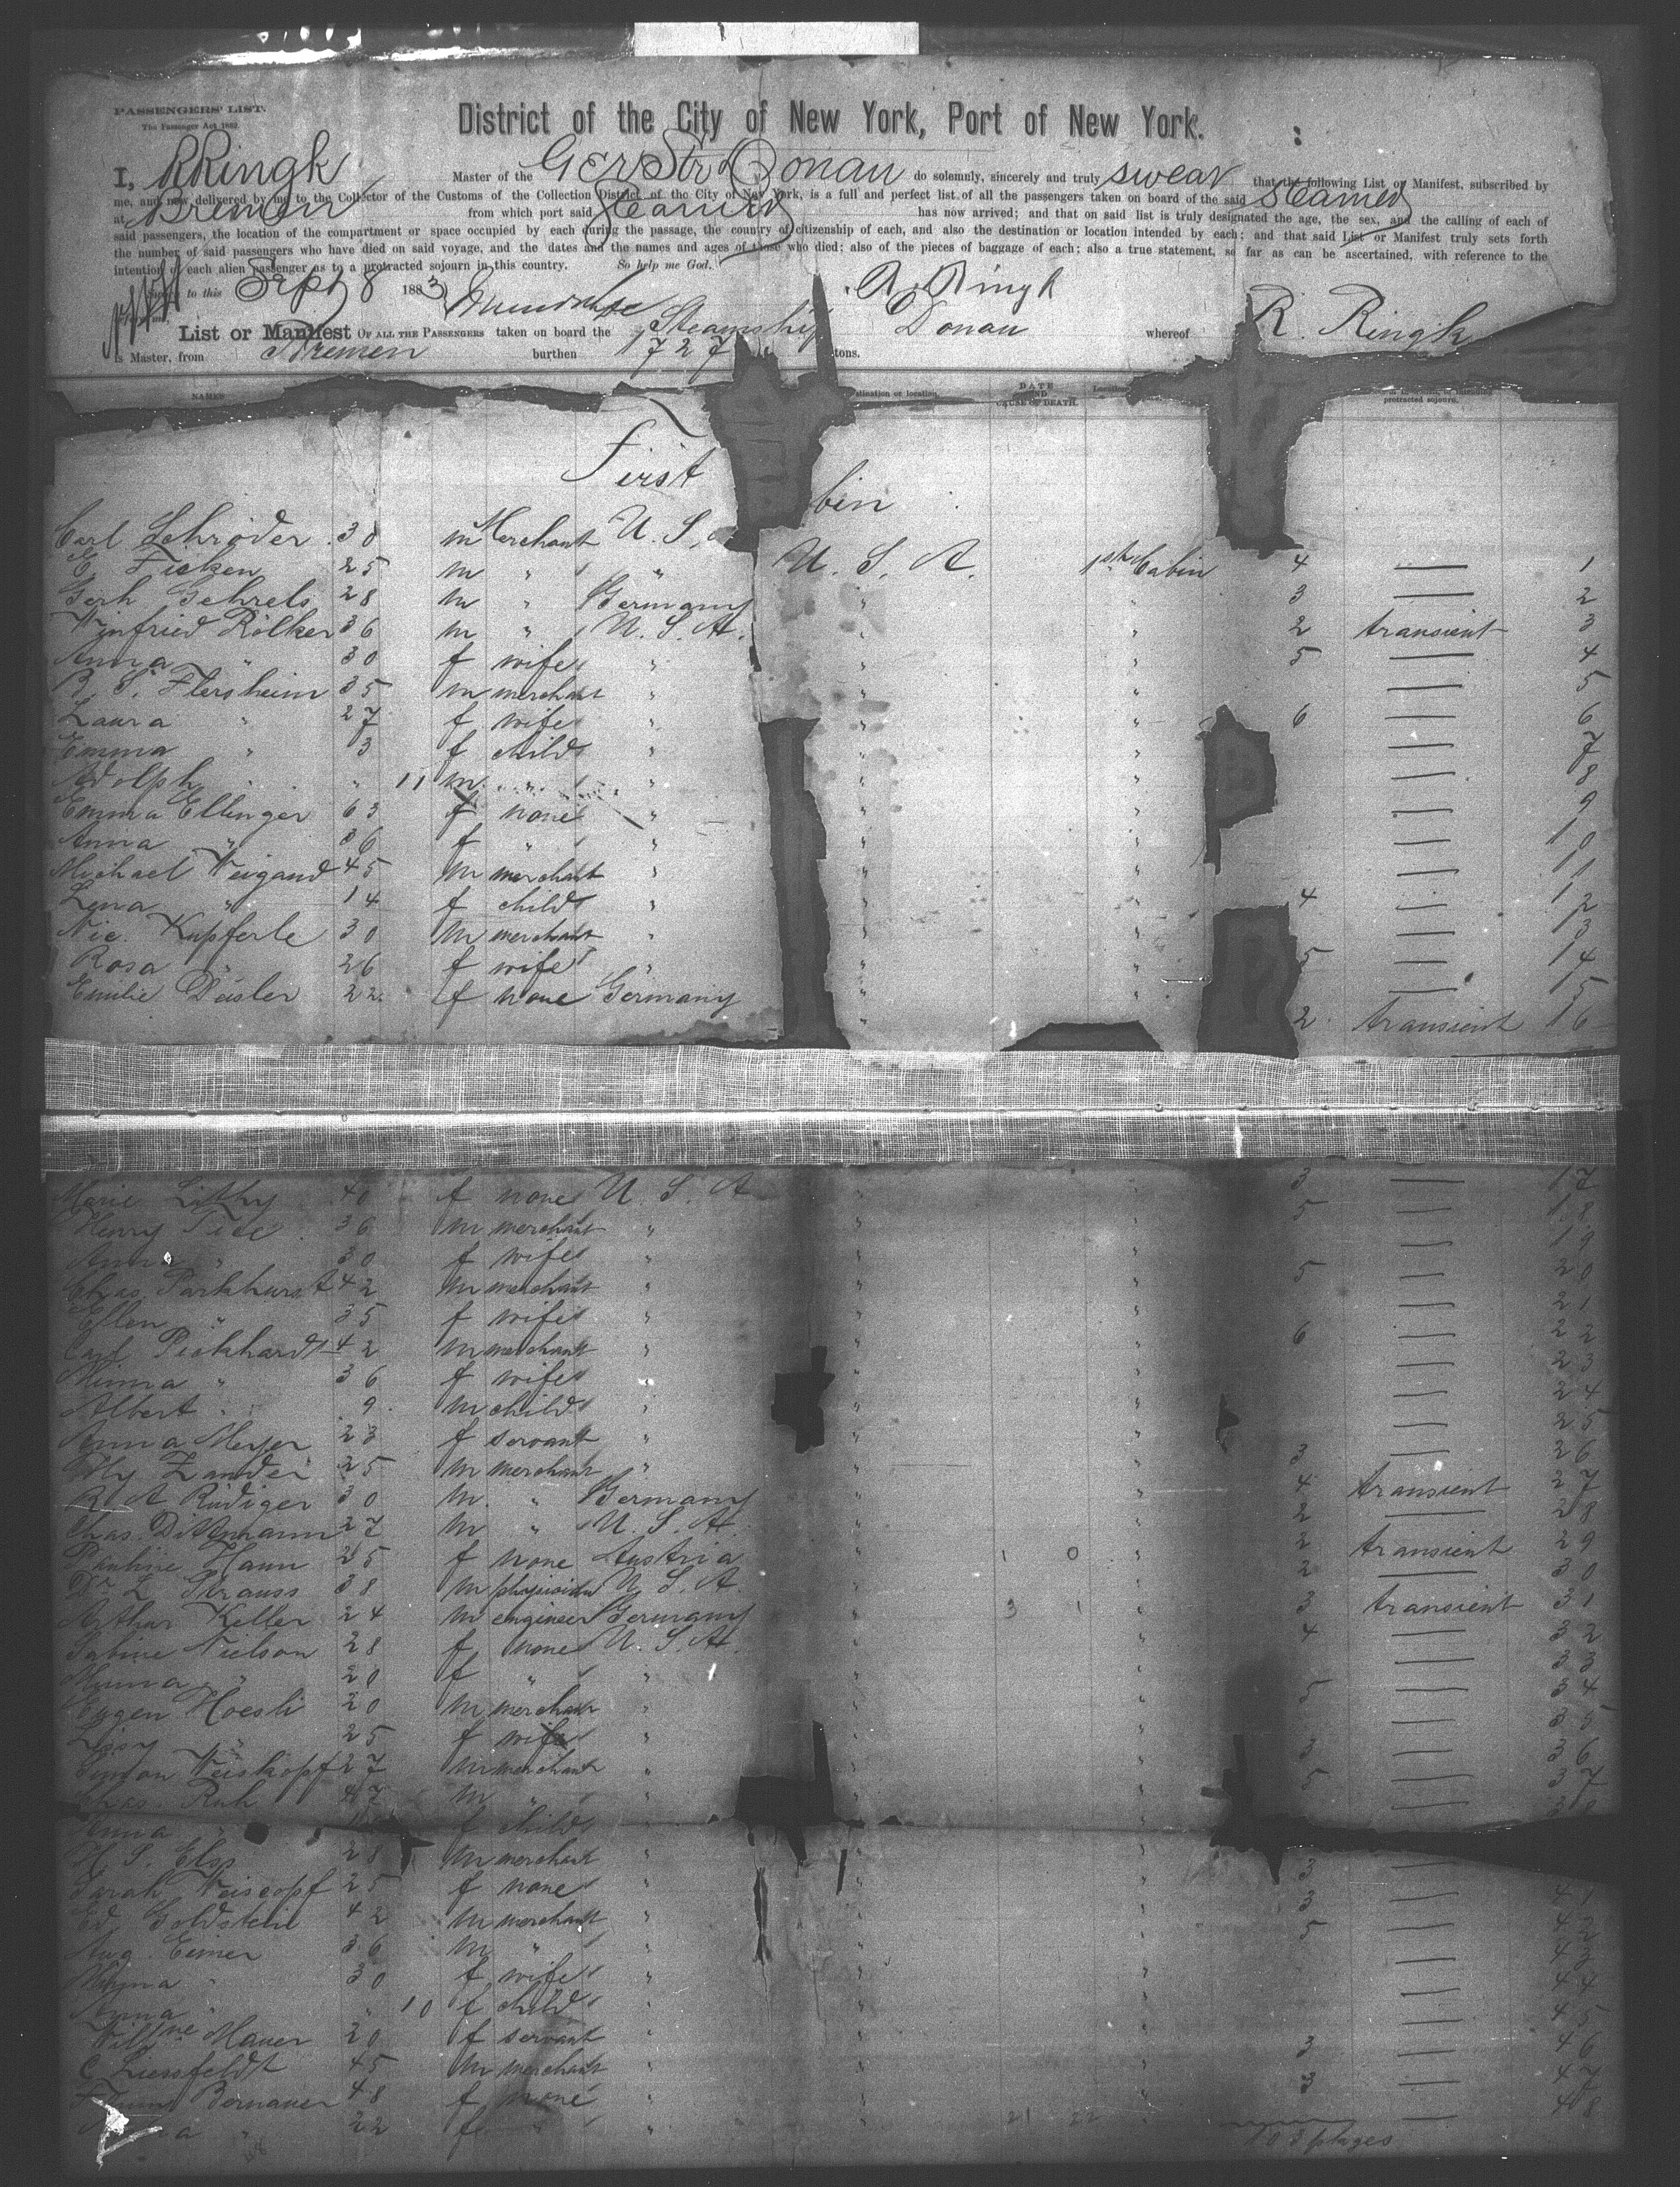 PASSENGERS' LIST.
The Passenger Act 1882.
District of the City of New York, Port of New York.
I, R Ringk Master of the Ger Str Donau do solemnly, sincerely and truly swear that the following List or Manifest, subscribed by
me, and now delivered by me to the Collector of the Customs of the Collection District of the City of New York, is a full and perfect list of all the passengers taken on board of the said Steamer
at Bremen from which port said Steamer has now arrived; and that on said list is truly designated the age, the sex, and the calling of each of
said passengers, the location of the compartment or space occupied by each during the passage, the country of citizenship of each, and also the destination or location intended by each; and that said List or Manifest truly sets forth
the number of said passengers who have died on said voyage, and the dates and the names and ages of those who died; also of the pieces of baggage of each; also a true statement, so far as can be ascertained, with reference to the
intention of each alien passenger as to a protracted sojourn in this country. So help me God.
to this Sept 8 1883 R. Ringk
List or Manifest OF ALL THE PASSENGERS taken on board the Steamship Donau whereof R. Ringk
is Master, from Bremen burthen 1727 tons.
NAMES stination or location. DATE AND CAUSE OF DEATH. protracted sojourn.
First bin
Carl Schröder 30 m Merchant U. S.
E. Ficken 25 m " " U. S. A. 1st Cabin 4 — 1
Gerh Gehrels 28 m " Germany " " 3 — 2
Winfried Rölker 36 m " U. S. A. " " 2 transient 3
Anna " 30 f wife " " " 5 — 4
B. S. Flersheim 35 m merchant " " " — 5
Laura " 27 f wife " " " 6 — 6
Emma " 3 f child " " " — 7
Adolph " " 11 m " " " " — 8
Emma Ellinger 63 f none " " " — 9
Anna " 36 f " " " " — 10
Michael Weigand 45 m merchant " " " — 11
Lena " 14 f child " " " 4 — 12
Nic. Kupferle 30 m merchant " " " — 13
Rosa " 26 f wife " " " 5 — 14
Emilie Deisler 22 f none Germany " " — 15
2 transient 16
Marie Lüthy 40 f none U. S. A " " 3 — 17
Henry Tice 36 m merchant " " " 5 — 18
Anna " 30 f wife " " " — 19
Chas. Parkhurst 42 m merchant " " " 5 — 20
Ellen " 35 f wife " " " — 21
Carl Pickhardt 42 m merchant " " " 6 — 22
Minna " 36 f wife " " " — 23
Albert " 9 m child " " " — 24
Anna Meyer 23 f servant " " " — 25
Zander 25 m merchant " " " 3 — 26
R. A Rüdiger 30 m " Germany " " 4 transient 27
Chas. Dittmann 27 m " U. S. A. " " 2 — 28
Pauline Hann 25 f none Austria " 1 0 " 2 transient 29
Dr L Strauss 38 m physician U. S. A. " " 2 — 30
Arthur Keller 24 m engineer Germany " 3 1 " 3 transient 31
Sabine Nielson 28 f none U. S. A. " " 4 — 32
Minna " 20 f " " " " — 33
Eugen Hoesli 20 m merchant " " " 5 — 34
Lissy " 25 f wife " " " — 35
Simon Weiskopf 27 m merchant " " " 3 — 36
Chas. Ruh 47 m " " " " 5 — 37
Anna " f child " " " — 38
H. S. 28 m merchant " " "
Sarah Weiscopf 25 f none " " " 3 —
Ed. Goldstein 42 m merchant " " " 3 — 41
Aug. Eimer 36 m " " " " 5 — 42
Minna " 30 f wife " " " — 43
Anna " " 10 f child " " " — 44
Willme Maner 20 f servant " " " — 45
C. Liessfeldt 45 m merchant " " " 3 — 46
Bernauer 48 f none " " " 3 — 47
a " 22 f " " 21 22 " — 48
103 pkges